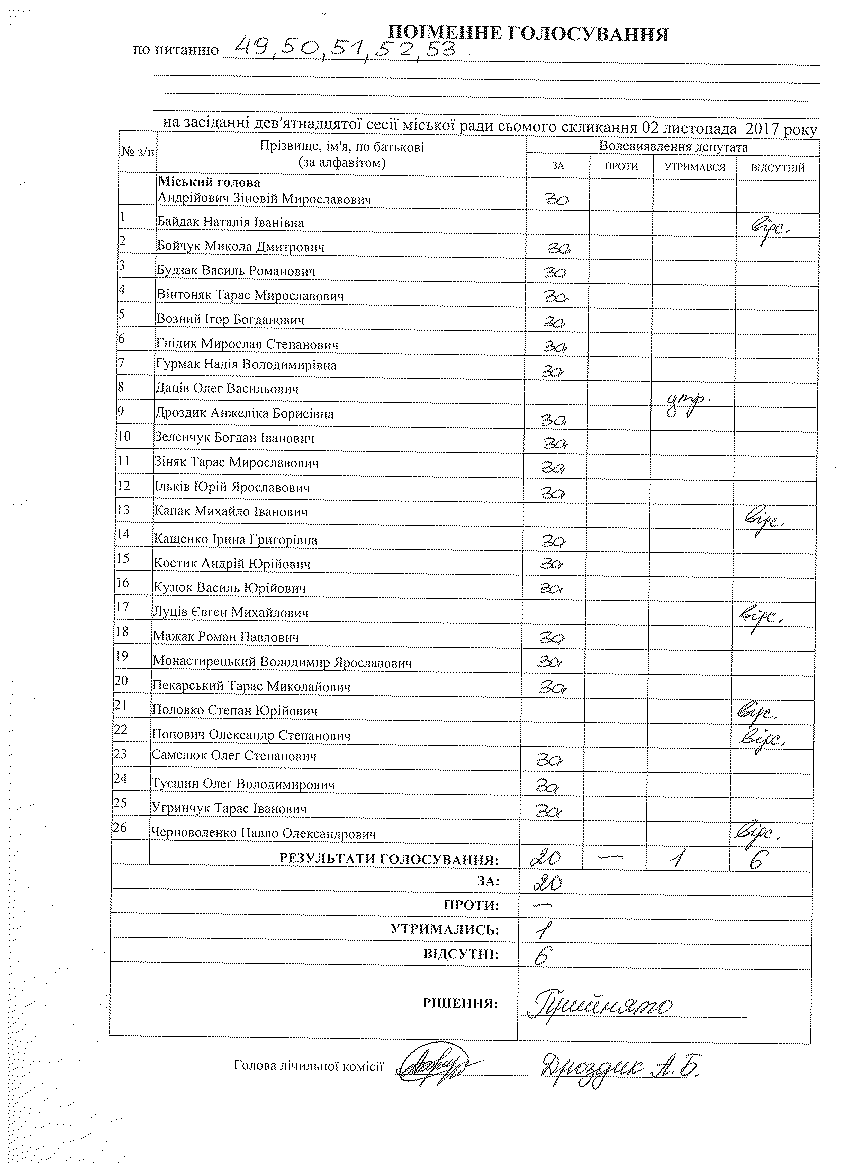 ПОІМЕННЕ ГОЛОСУВАННЯ
по питанню 49,50,51,52,53.
на засіданні дев'ятнадцятої сесії міської ради сьомого скликання 02 листопада 2017 року
№ з/п Прізвище, ім'я, по батькові (за алфавітом) Волевиявлення депутата
ЗА ПРОТИ УТРИМАВСЯ ВІДСУТНІЙ
Міський голова
Андрійович Зіновій Мирославович За
1 Байдак Наталія Іванівна відс.
2 Бойчук Микола Дмитрович За
3 Будзак Василь Романович За
4 Вінтоняк Тарас Мирославович За
5 Возний Ігор Богданович За
6 Гнідик Мирослав Степанович За
7 Гурмак Надія Володимирівна За
8 Даців Олег Васильович утр.
9 Дроздик Анжеліка Борисівна За
10 Зеленчук Богдан Іванович За
11 Зіняк Тарас Мирославович За
12 Ільків Юрій Ярославович За
13 Капак Михайло Іванович відс.
14 Кащенко Ірина Григорівна За
15 Костик Андрій Юрійович За
16 Кузюк Василь Юрійович За
17 Луців Євген Михайлович відс.
18 Мажак Роман Павлович За
19 Монастирецький Володимир Ярославович За
20 Пекарський Тарас Миколайович За
21 Половко Степан Юрійович відс.
22 Попович Олександр Степанович відс.
23 Самелюк Олег Степанович За
24 Тусшин Олег Володимирович За
25 Угринчук Тарас Іванович За
26 Черноволенко Павло Олександрович відс.
РЕЗУЛЬТАТИ ГОЛОСУВАННЯ: 20 — 1 6
ЗА: 20
ПРОТИ: —
УТРИМАЛИСЬ: 1
ВІДСУТНІ: 6
РІШЕННЯ: Прийнято
Голова лічильної комісії Дроздик А.Б.